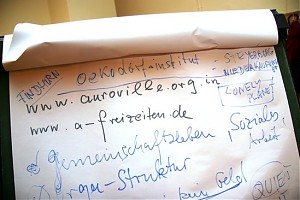 FINDHORN
oekodorf-institut
STEYERBERG
NIEDERKAUFUNGEN
www.auroville.org.in
LONELY PLANET
www.a-freizeiten.de
Gemeinschaftsleben, Soziales,
Arbeit
Orga-Struktur
kein Geld
QUIET